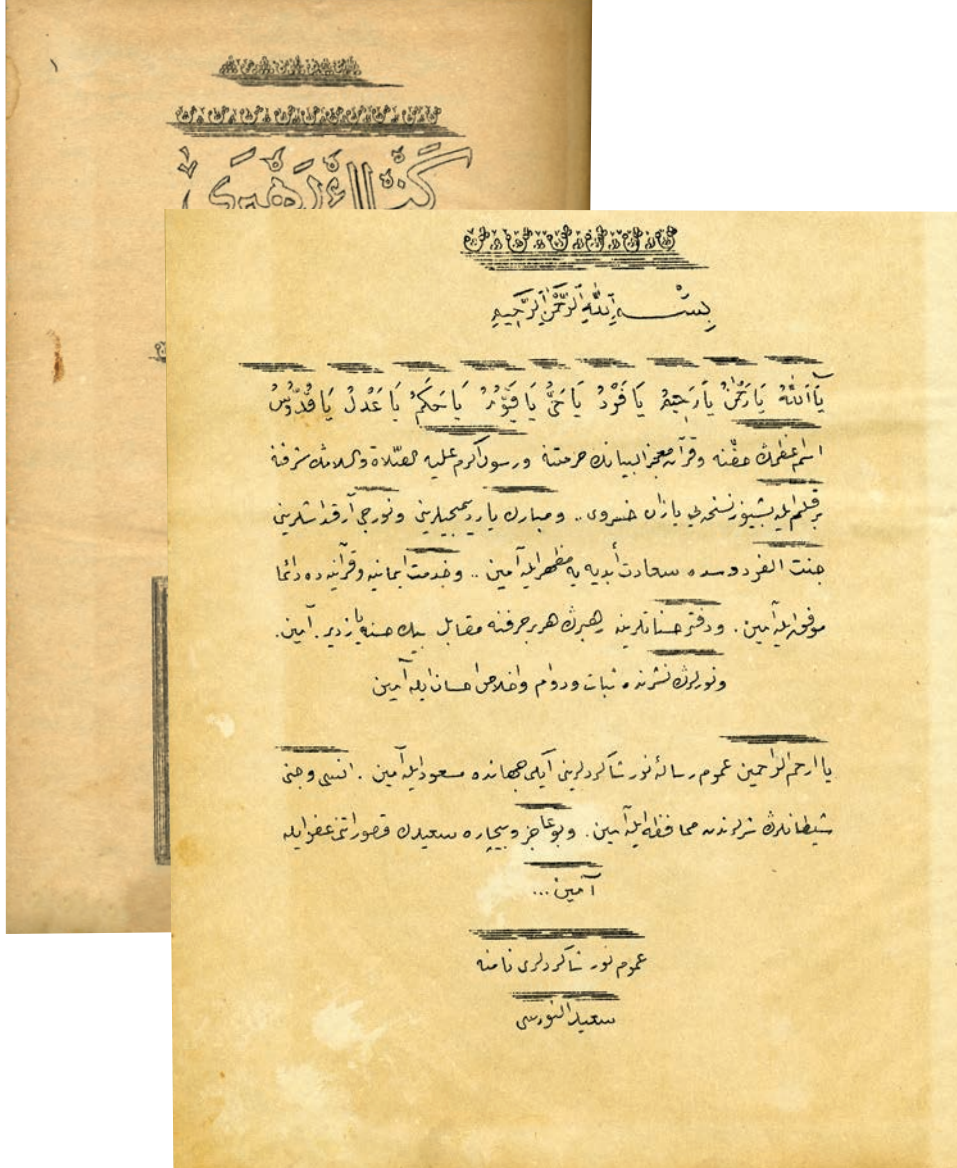 ١
گنجلك رهبرى
بِسْــــمِ اللهِ الرَّحْمٰنِ الرَّحِيمِ
يَا اَللهُ يَا رَحْمٰنُ يَا رَحِيمُ يَا فَرْدُ يَا حَىُّ يَا قَيُّومُ يَا حَكَمُ يَا عَدْلُ يَا قُدُّوسُ
اسم اعظمڭ حقّنه وقرآن معجزالبيانڭ حرمتنه ورسول اكرم عليه الصّلاة والسلامڭ شرفنه
بر قلم ايله بشيوز نسخه يى يازان خسروى .. ومبارك يارديمجيلرينى ونورجى آرقداشلرينى
جنت الفردوسده سعادت أبديه يه مظهر ايله آمين .. وخدمت ايمانيه وقرآنيه ده دائما
موفق ايله آمين . ودفتر حسناتلرينه رهبرڭ هر بر حرفنه مقابل بيڭ حسنه يازدير . آمين .
ونورلرڭ نشرنده ثبات ودوام واخلاص احسان ايله آمين
يا ارحم الراحمين عموم رسالۀ نور شاكردلرينى ايكى جهانده مسعود ايله آمين . انسى وجنى
شيطانلرڭ شرلرندن محافظه ايله آمين . وبو عاجز وبيچاره سعيدڭ قصوراتنى عفو ايله
آمين ...
عموم نور شاكردلرى نامنه
سعيد النورسى